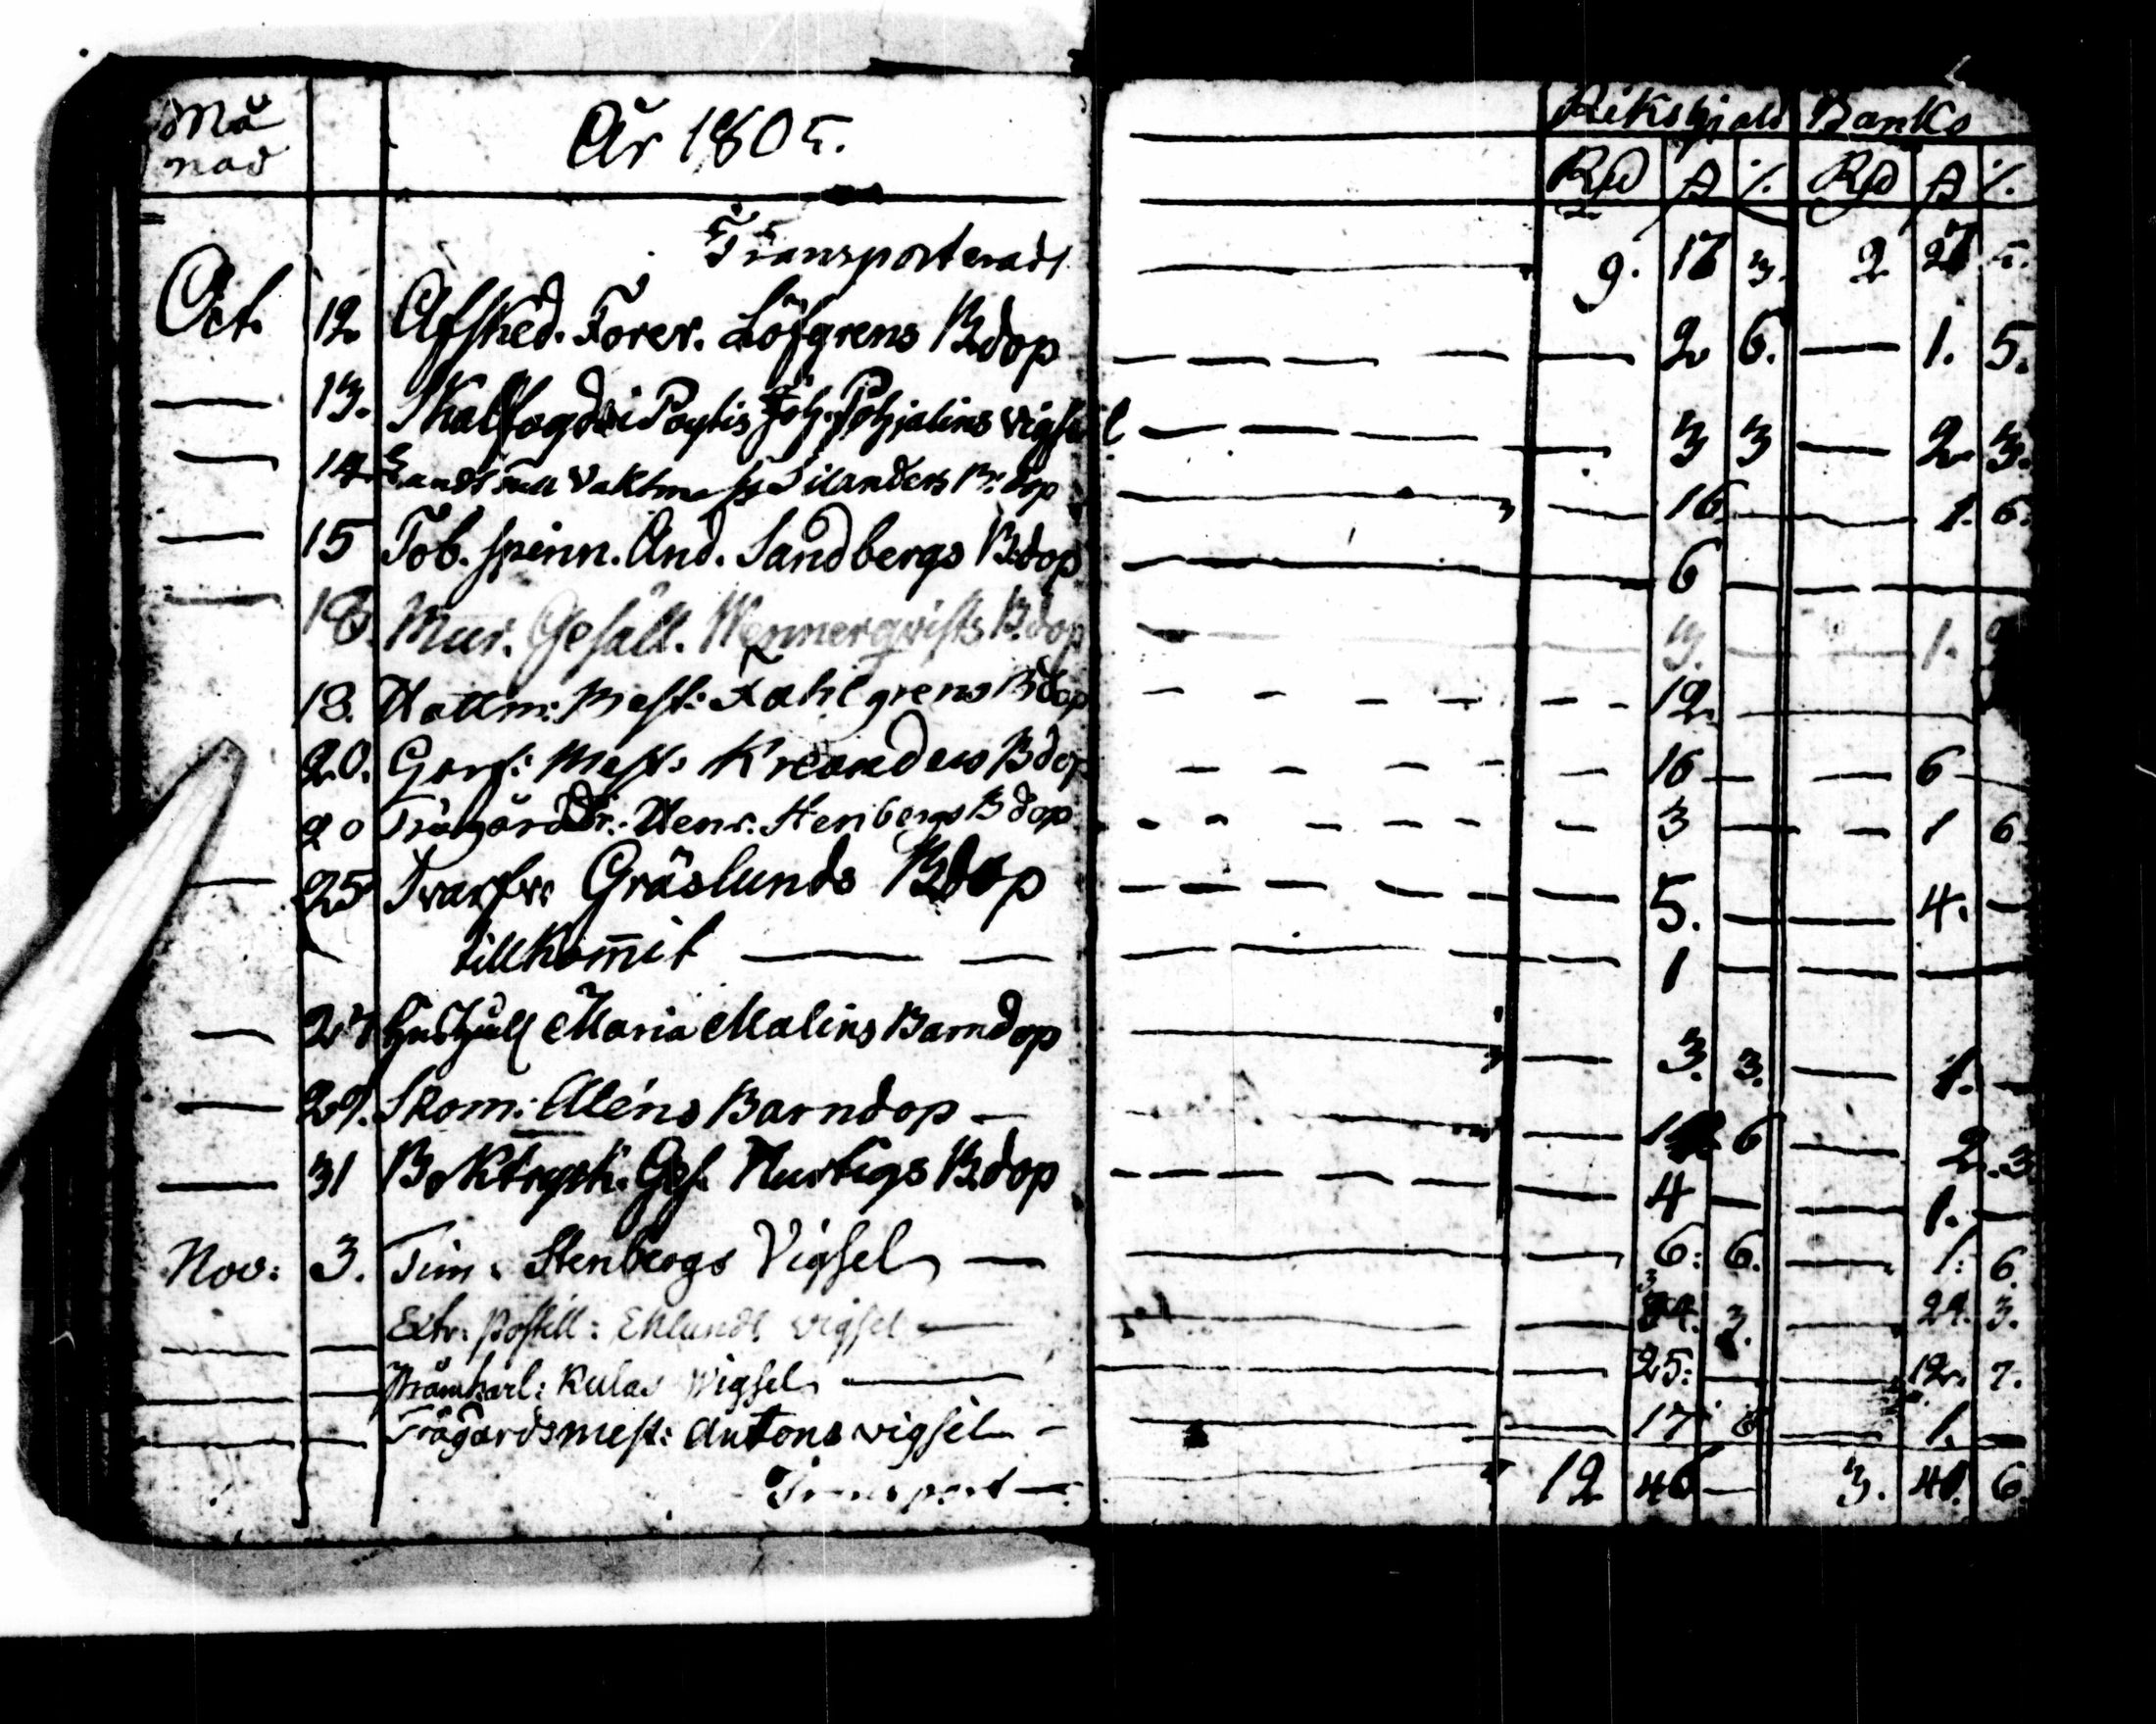 Må År 1805. Riksgjald Banko
nad Rd ß /. Rd ß /.
Transporteradt 9. 17 3. 2 27 5.
Oct. 12 Afsked. Forer. Löfgrens B.dop — 2 6. — 1. 5.
— 13. i Poytis Joh. Pohjalins vigsel — 3 3 — 2. 3.
— 14. Silanders B:dop — 16. — 1. 6.
— 15 Tob. spinn. And. Sandbergs B.dop — 6 — — —
— 18. Mur. Gesäll. Wennerqvists B.dop — 3. — 1.
18. Hattm: Mest: Fahlgrens Bdop — 12. —
20. Garf: Mest: Kreanders Bdop — 16 — — 6 —
20 Henr. Stenbergs Bdop — 3 — — 1 6
— 25 Svarfv: Gräslunds Bdop — 5. — — 4. —
tillkom̄it — 1 — — — —
— 27 Maria Malins Barndop — 3. 3. — 1. —
— 29. Skom: Aléns Barndop — 6 — 2. 3
— 31 Boktryck. Ges. Hurtigs B.dop — 4 — — 1. —
Nov: 3. Tim: Stenbergs Vigsel — 6: 6. — 1: 6.
— — Extr: postill: Eklunds vigsel — 3. — 24. 3.
— — Kulas Wigsel — 25: — — 12. 7.
— — Trägårdsmest: Antons vigsel — 17 — 1. —
Transport — 12 46 — 3. 41. 6